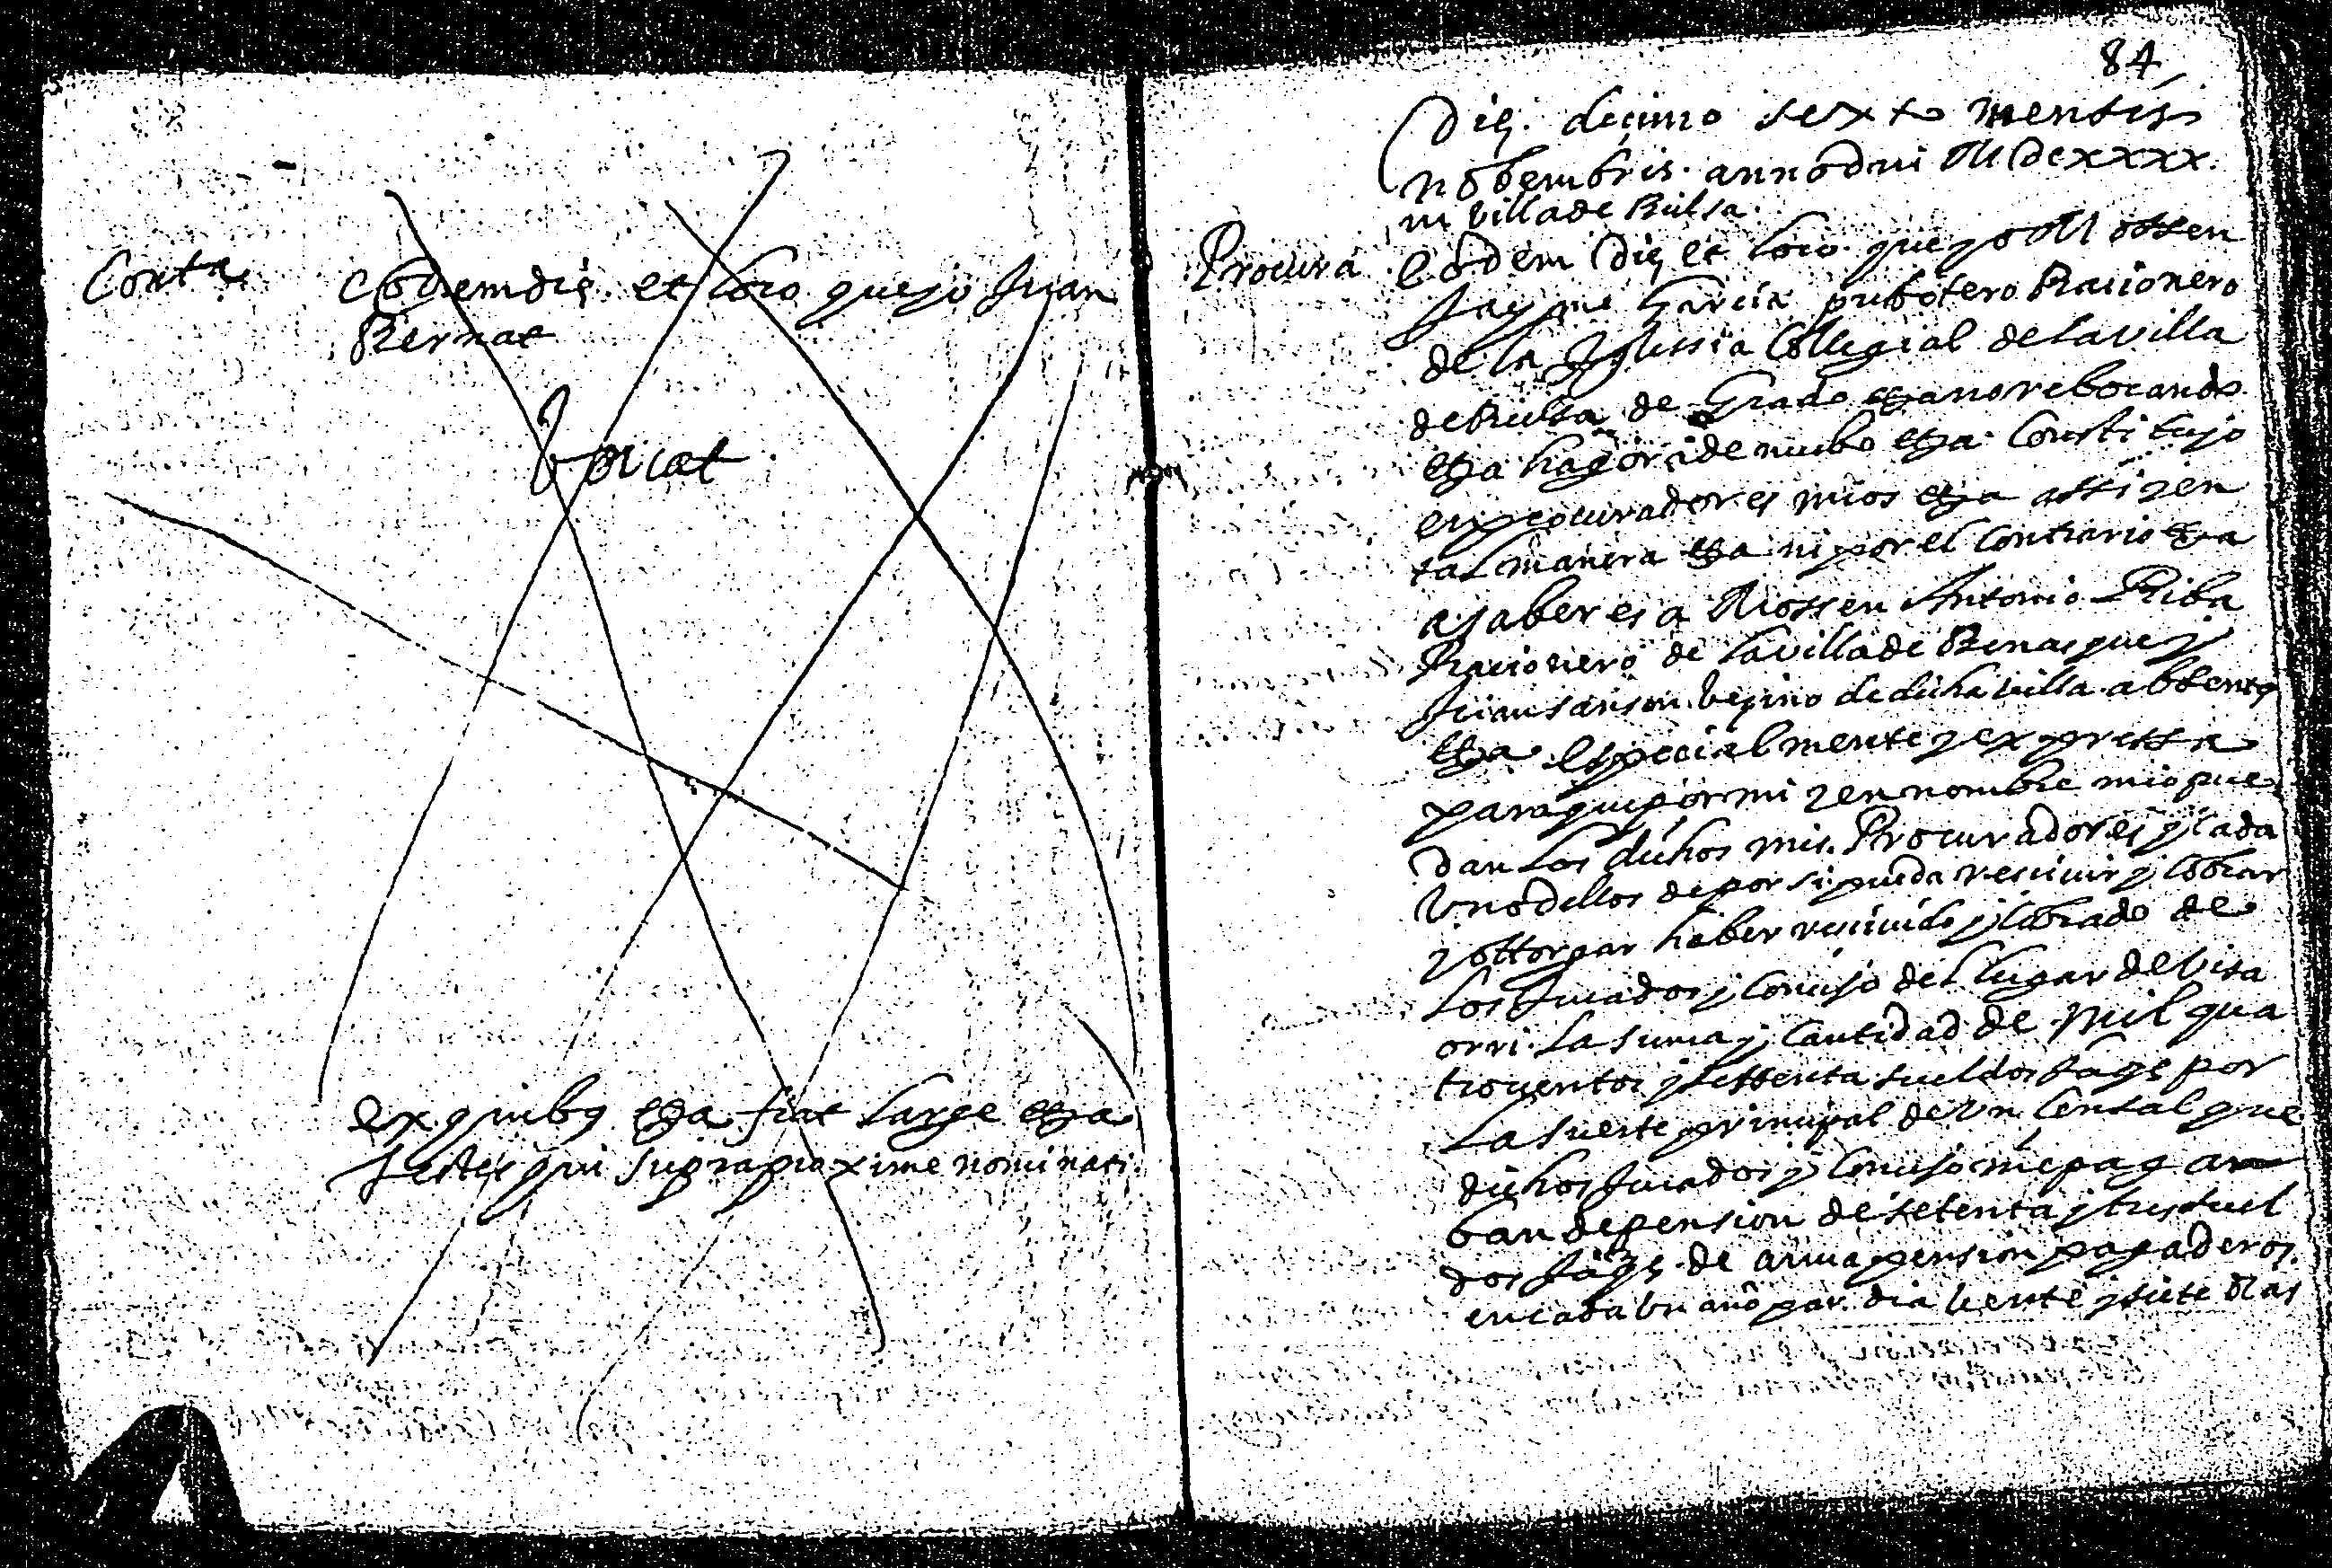 Conta
Eodem die et loco que yo Juan
Bernat
Vacat
ex quibus etza fiat large etza
testes qui supra proxime nominati
84
Die decimo sexto mensis
nobembris anno dni M dcxxxx
in villa de Bielsa
Procura
Eodem die et loco que yo Mossen
Jayme Garcia presbotero Racionero
de la Iglessia Collegial de la villa
de Bielsa de Grado etza no rebocando
etza hagora de nuebo etza Constituyo
en procuradores mios etza assi y en
tal manera etza ni por el contrario etza
a saber es a Mossen Antonio Riba
Racionero de la villa de Benasque y
Juan sanson beçino de dicha villa absentes
etza Especialmente y expressa
para que por mi y en nombre mio pue
dan los dichos mis Procuradores y cada
Uno dellos de por si pueda rescivir y cobrar
y ottorgar haber rescivido y cobrado de
Los Jurados y Concejo del Lugar de Visa
orri La suma y Cantidad de Mil qua
trocientos y sessenta sueldos Jaqs por
La suerte principal de Un Censal que
dichos Jurados y Concejo me pagar
ban de pension de setenta y tres suel
dos Jaqs de annua pension pagaderos
en cada Un año par dia Veente y siete dias